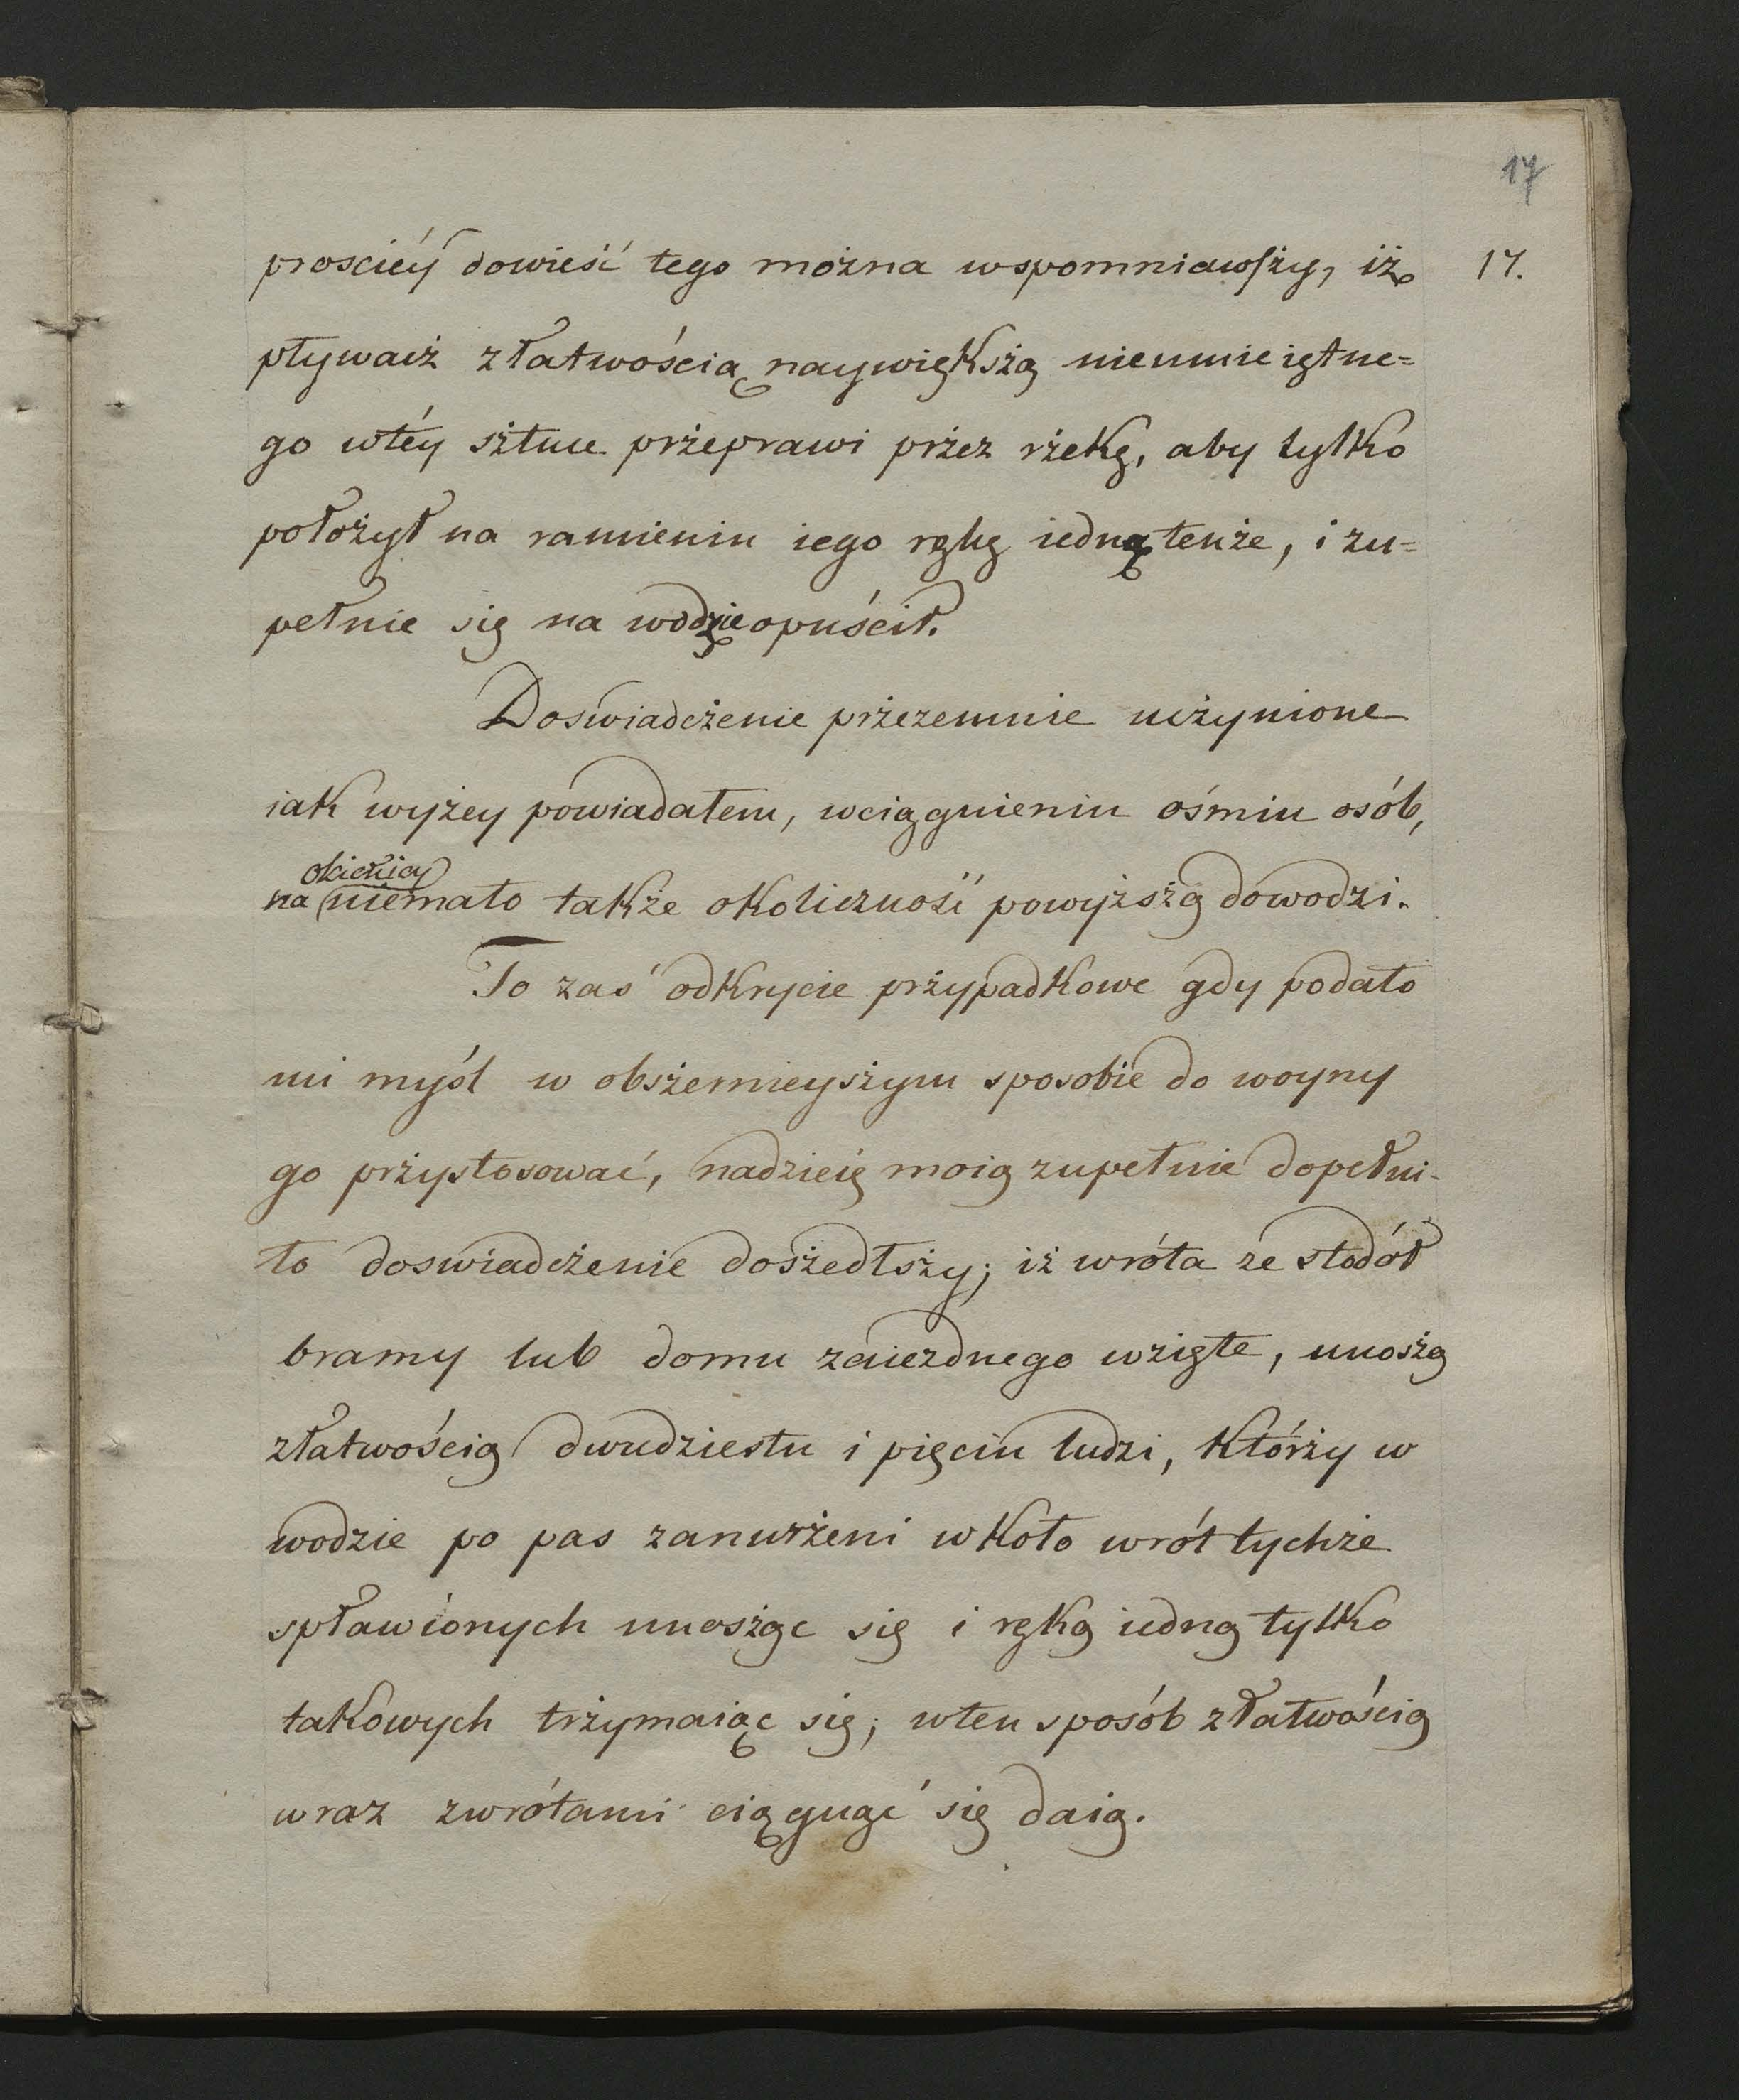 17
prosciéy dowieść tego można wspomniawszy, iż 17.
pływacż z łatwością naywiększą nieumieiętne=
go wtéy sżtuce prżeprawi prżez rżekę, aby tylko
położył na ramieniu iego rękę iedną tenże, i zu=
pełnie się na wodzie opuścił.
Doswiadcżenie prżezemnie ucżynione
iak wyżey powiadałem, wciągnieniu ośmiu osób,
okienicy
na niemało także okoliczność powyższą dowodzi.
To zaś odkrycie prżypadkowe gdy podało
mi myśl w obsżernieysżym sposobie do woyny
go prżystosować, nadzieię moią zupełnie dopełni-
ło doswiadcżenie dosżedłsży; iż wróta ze stodół
bramy lub domu zaiezdnego wzięte, unosżą
złatwością dwudziestu i pięciu ludzi, którży w
wodzie po pas zanurżeni wkoło wrót tychże
spławionych unosżąc się i ręką iedną tylko
takowych trżymaiąc się; wten sposób złatwością
wraz zwrótami ciągnąć się daią.